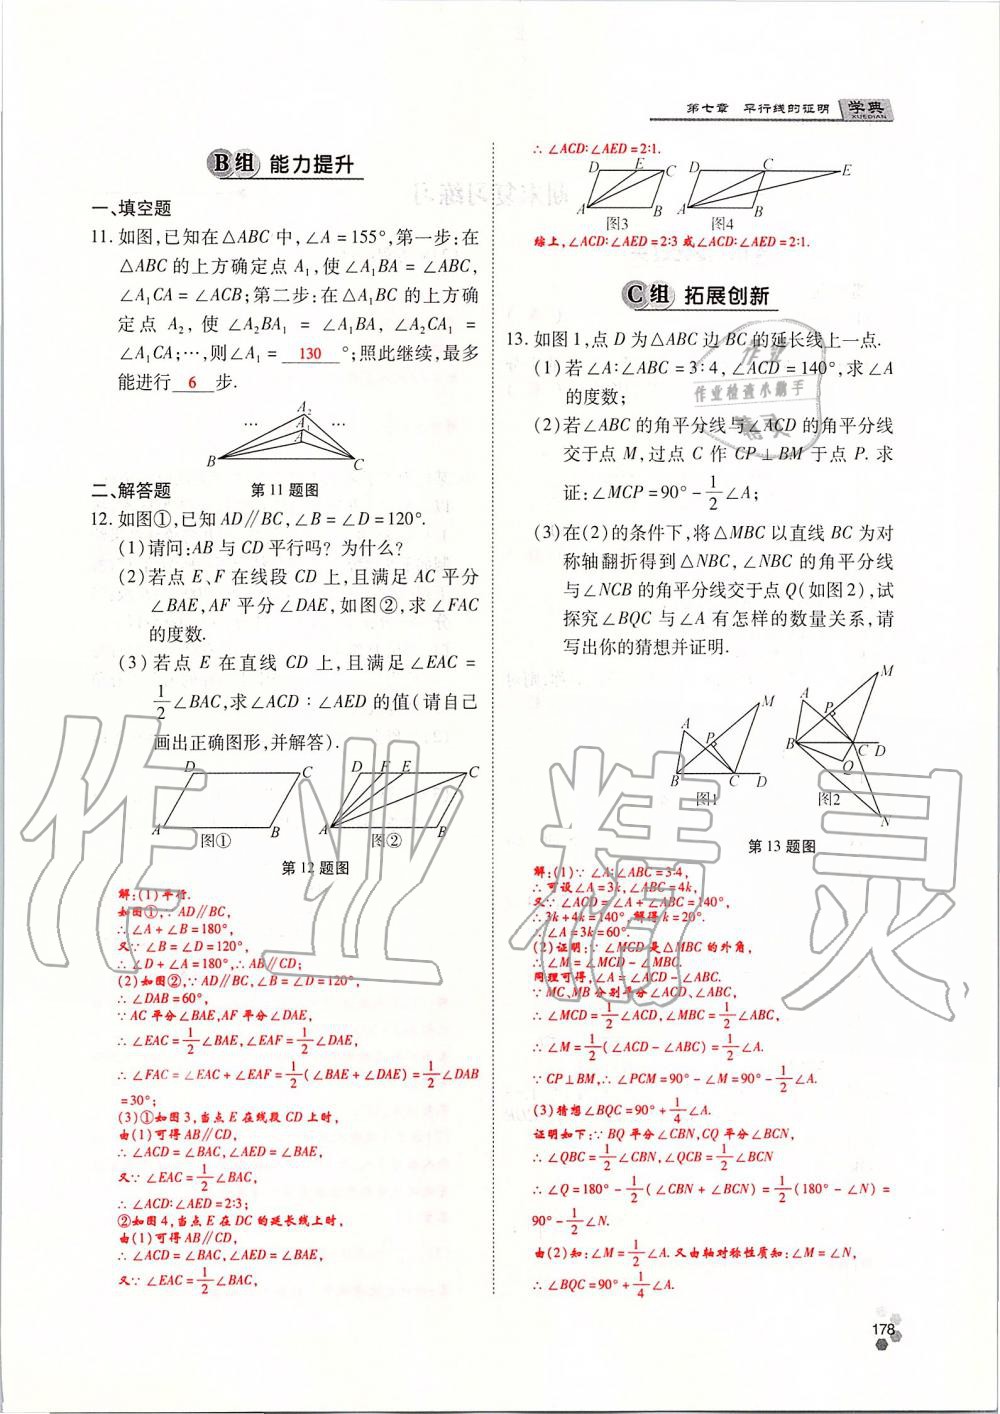 第七章 平行线的证明 学典
XUEDIAN
B组 能力提升
一、填空题
11. 如图,已知在△ABC 中,∠A = 155°,第一步:在
△ABC 的上方确定点 A₁,使∠A₁BA = ∠ABC,
∠A₁CA = ∠ACB;第二步:在△A₁BC 的上方确
定点 A₂,使∠A₂BA₁ = ∠A₁BA,∠A₂CA₁ =
∠A₁CA;…,则∠A₁ = 130 °;照此继续,最多
能进行 6 步.
A₂
… A₁ …
A
B C
第 11 题图
二、解答题
12. 如图①,已知 AD∥BC,∠B = ∠D = 120°.
(1)请问:AB 与 CD 平行吗? 为什么?
(2)若点 E、F 在线段 CD 上,且满足 AC 平分
∠BAE,AF 平分∠DAE,如图②,求∠FAC
的度数.
(3)若点 E 在直线 CD 上,且满足∠EAC =
1/2∠BAC,求∠ACD∶∠AED 的值(请自己
画出正确图形,并解答).
D C D F E C
A B A B
图① 图②
第 12 题图
解:(1)平行.
如图①,∵AD∥BC,
∴∠A + ∠B = 180°,
又∵∠B = ∠D = 120°,
∴∠D + ∠A = 180°,∴AB∥CD;
(2)如图②,∵AD∥BC,∠B = ∠D = 120°,
∴∠DAB = 60°,
∵AC 平分∠BAE,AF 平分∠DAE,
∴∠EAC = 1/2∠BAE,∠EAF = 1/2∠DAE,
∴∠FAC = ∠EAC + ∠EAF = 1/2(∠BAE + ∠DAE) = 1/2∠DAB
= 30°;
(3)①如图 3,当点 E 在线段 CD 上时,
由(1)可得 AB∥CD,
∴∠ACD = ∠BAC,∠AED = ∠BAE,
又∵∠EAC = 1/2∠BAC,
∴∠ACD:∠AED = 2:3;
②如图 4,当点 E 在 DC 的延长线上时,
由(1)可得 AB∥CD,
∴∠ACD = ∠BAC,∠AED = ∠BAE,
又∵∠EAC = 1/2∠BAC,
∴∠ACD:∠AED = 2:1.
D E C D C E
A B A B
图3 图4
综上,∠ACD:∠AED = 2:3 或∠ACD:∠AED = 2:1.
C组 拓展创新
13. 如图 1,点 D 为△ABC 边 BC 的延长线上一点.
(1)若∠A:∠ABC = 3:4,∠ACD = 140°,求∠A
的度数;
(2)若∠ABC 的角平分线与∠ACD 的角平分线
交于点 M,过点 C 作 CP⊥BM 于点 P. 求
证:∠MCP = 90° - 1/2∠A;
(3)在(2)的条件下,将△MBC 以直线 BC 为对
称轴翻折得到△NBC,∠NBC 的角平分线
与∠NCB 的角平分线交于点 Q(如图 2),试
探究∠BQC 与∠A 有怎样的数量关系,请
写出你的猜想并证明.
作业
作业检查小助手
精灵
M
A P
B C D
图1
M
A P
B C D
Q
N
图2
第 13 题图
解:(1)∵∠A:∠ABC = 3:4,
∴可设∠A = 3k,∠ABC = 4k,
又∵∠ACD = ∠A + ∠ABC = 140°,
∴3k + 4k = 140°,解得 k = 20°.
∴∠A = 3k = 60°.
(2)证明:∵∠MCD 是△MBC 的外角,
∴∠M = ∠MCD - ∠MBC.
同理可得,∠A = ∠ACD - ∠ABC.
∵MC、MB 分别平分∠ACD、∠ABC,
∴∠MCD = 1/2∠ACD,∠MBC = 1/2∠ABC,
∴∠M = 1/2(∠ACD - ∠ABC) = 1/2∠A.
∵CP⊥BM,∴∠PCM = 90° - ∠M = 90° - 1/2∠A.
(3)猜想∠BQC = 90° + 1/4∠A.
证明如下:∵BQ 平分∠CBN,CQ 平分∠BCN,
∴∠QBC = 1/2∠CBN,∠QCB = 1/2∠BCN
∴∠Q = 180° - 1/2(∠CBN + ∠BCN) = 1/2(180° - ∠N) =
90° - 1/2∠N.
由(2)知:∠M = 1/2∠A. 又由轴对称性质知:∠M = ∠N,
∴∠BQC = 90° + 1/4∠A.
作业精灵
178